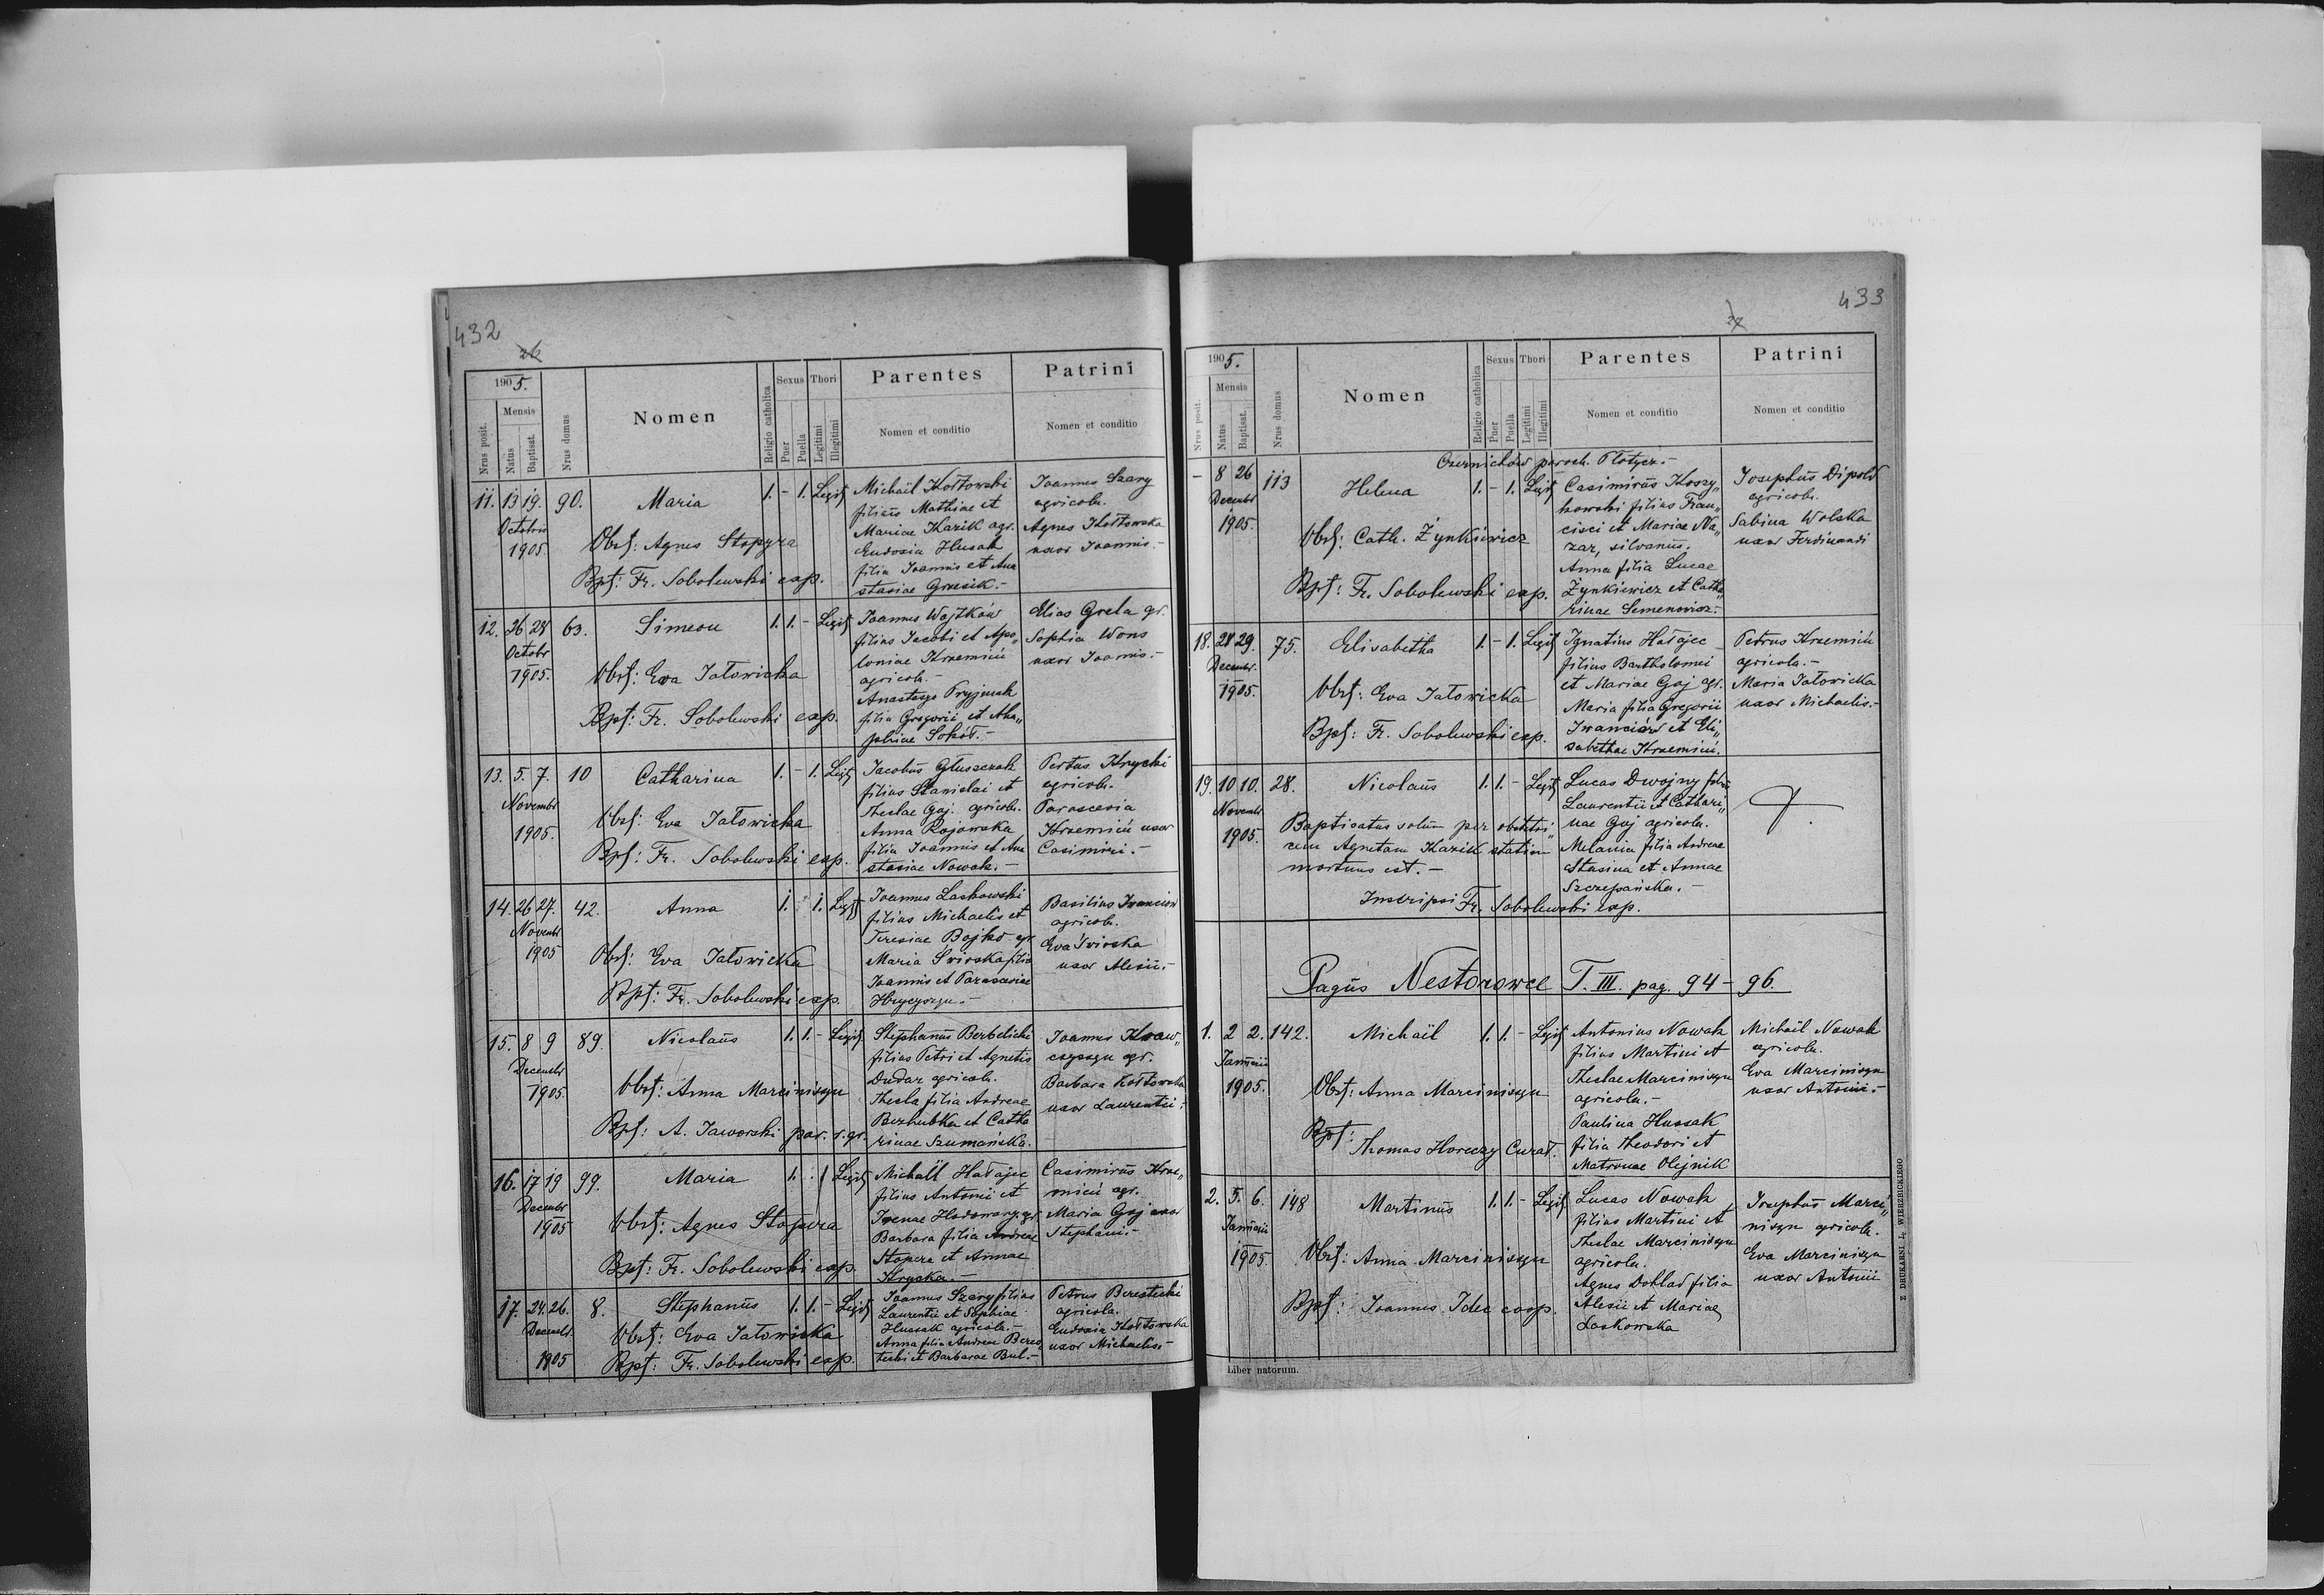 432
26
1905.
Nrus posit.
Mensis
Natus
Baptisat.
Nrus domus
Nomen
Religio catholica
Sexus
Puer
Puella
Thori
Legitimi
Illegitimi
Parentes
Nomen et conditio
Patrini
Nomen et conditio
11. 13 19. 90. Maria 1. - 1. Legit
Octobris
1905.
Obst: Agnes Stopyra
Bpt: Fr. Sobolewski exp.
Michaël Kołtowski
filius Mathiae et
Mariae Kazik agr.
Eudoxia Husak
filia Joannis et Ana
stasiae Grusik.-
Joannes Szary
agricola.
Agnes Kołtowska
uxor Joannis.-
12. 26 28 63. Simeon 1. 1. - Legit
Octobr
1905.
Obst: Eva Jatowicka
Bpt: Fr. Sobolewski exp.
Joannes Wojtków
filius Jacobi et Apo„
loniae Krzemiń
agricola.-
Anastazya Pryjmak
filia Gregorii et Aha„
phiae Sokół.-
Elias Grela gr.
Sophia Wons
uxor Joannis.-
13. 5. 7. 10 Catharina 1. - 1. Legit
Novembr
1905.
Obst: Eva Jatowicka
Bpt: Fr. Sobolewski exp.
Jacobus Gluszczak
filius Stanislai et
Theclae Gaj. agricola.
Anna Rojowska
filia Joannis et Ana
stasiae Nowak.-
Petrus Krycki
agricola.
Parascevia
Krzemiń uxor
Casimiri.-
14. 26 27. 42. Anna 1. 1. Legit
Novembr
1905
Obst: Eva Jatowicka
Bpt: Fr. Sobolewski exp.
Joannes Laskowski
filius Michaelis et
Teresiae Bojko agr.
Maria Świrska filia
Joannis et Parasceviae
Hrycyszyn.-
Basilius Iwanciów
agricola.
Eva Świrska
uxor Alexii.-
15. 8 9 89. Nicolaus 1. 1. - Legit.
Decembr
1905.
Obst: Anna Marciniszyn
Bpt: A. Jaworski par. r. gr.
Stephanus Berbelicki
filius Petri et Agnetis
Dudar agricola.
Thecla filia Andreae
Bezhubka et Catha
rinae Szumańska.
Joannes Kraw„
czyszyn agr.
Barbara Kołtowska
uxor Laurentii.-
16. 17 19 99. Maria 1. : 1 Legit
Decembr
1905
Obst: Agnes Stopyra
Bpt: Fr. Sobolewski exp.
Michaël Hałajec
filius Antonii et
Irenae Hadowany gr.
Barbara filia Andreae
Stopera et Annae
Stryska.-
Casimirus Krze„
miń agr.
Maria Gaj uxor
Stephani.-
17. 24. 26. 8. Stephanus 1. 1. - Legit
Decembr.
1905
Obst: Eva Jatowicka
Bpt: Fr. Sobolewski exp.
Joannes Szary filius
Laurentii et Sophiae
Hussak agricola.-
Anna filia Andreae Beres„
tecki et Barbarae Bul.-
Petrus Berestecki
agricola.
Eudoxia Kołtowska
uxor Michaelis.-
433
27
1905.
Nrus posit.
Mensis
Natus
Baptisat.
Nrus domus
Nomen
Religio catholica
Sexus
Puer
Puella
Thori
Legitimi
Illegitimi
Parentes
Nomen et conditio
Patrini
Nomen et conditio
Czernichów paroch. Płotycz.-
- 8 26 113 Helena 1. - 1. Legit
Decembr
1905.
Obst: Cath. Żynkiewicz
Bpt: Fr. Sobolewski exp.
Casimirus Koszy„
kowski filius Fran„
cisci et Mariae Na„
zar, silvanus.
Anna filia Lucae
Żynkiewicz et Catha„
rinae Semenowicz.-
Josephus Dipold
agricola.
Sabina Wolska
uxor Ferdinandi
18. 28 29. 75. Elisabetha 1. - 1. Legit
Decembr.
1905.
Obst: Eva Jatowicka
Bpt: Fr. Sobolewski exp.
Ignatius Hałajec
filius Bartholomei
et Mariae Gaj agr.
Maria filia Gregorii
Iwanciów et Eli„
sabethae Krzemiń.
Petrus Krzemiń
agricola.-
Maria Jatowicka
uxor Michaelis.-
19. 10 10. 28. Nicolaus 1. 1. - Legit
Novembr
1905.
Baptisatus solum per obstetri„
cem Agnetam Kazik statim
mortuus est.-
Inscripsi Fr. Sobolewski exp.
Lucas Dwojny filius
Laurentii et Cathari„
nae Gaj agricola.
Melania filia Andreae
Stasina et Annae
Szczepańska.-
Pagus Nestorowce T. III. pag. 94 - 96.
1. 2 2. 142. Michaël 1. 1. - Legit
Januarii
1905.
Obst: Anna Marciniszyn
Bpt:
Thomas Horeczy Curat.
Antonius Nowak
filius Martini et
Theclae Marciniszyn
agricola.-
Paulina Hussak
filia Theodori et
Matronae Olejnik
Michaël Nowak
agricola.
Eva Marciniszyn
uxor Antonii.-
2. 5. 6. 148 Martinus 1. 1. - Legit
Januarii
1905.
Obst: Anna Marciniszyn
Bpt: Joannes Idec coop.
Lucas Nowak
filius Martini et
Theclae Marciniszyn
agricola.
Agnes Dokład filia
Alexii et Mariae
Laskowska
Josephus Marci„
niszyn agricola.
Eva Marciniszyn
uxor Antonii
Liber natorum.
Z DRUKARNI L. WIERZBICKIEGO